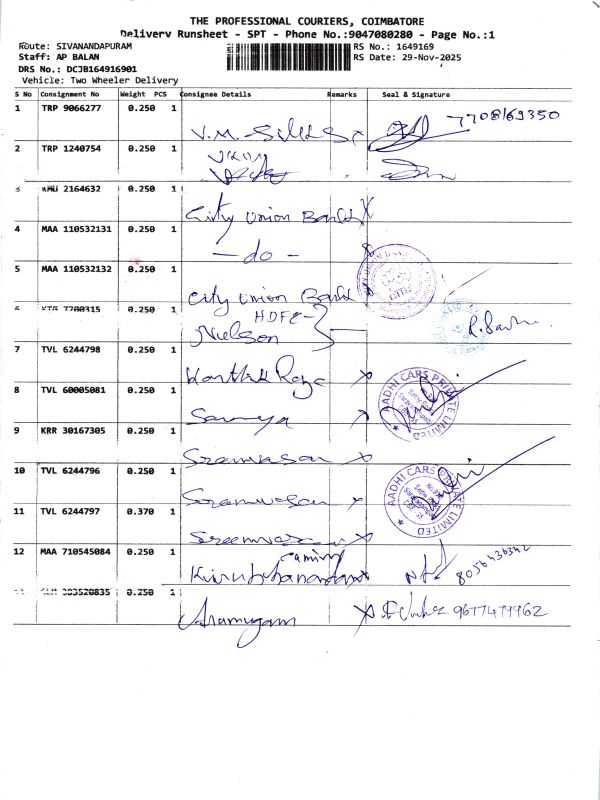 THE PROFESSIONAL COURIERS, COIMBATORE
Delivery Runsheet - SPT - Phone No.:9047080280 - Page No.:1
Route: SIVANANDAPURAM RS No.: 1649169
Staff: AP BALAN RS Date: 29-Nov-2025
DRS No.: DCJB164916901
Vehicle: Two Wheeler Delivery
S No Consignment No Weight PCS Consignee Details Remarks Seal & Signature
1 TRP 9066277 0.250 1
V.M. 7708169350
2 TRP 1240754 0.250 1
3 KMU 2164632 0.250 1
City Union Bank X
4 MAA 110532131 0.250 1
- do -
5 MAA 110532132 0.250 1
City Union Bank
6 7700315 0.250 1
HDFC
Nielson
7 TVL 6244798 0.250 1
Karthik Raja X
AADHI CARS PRIVATE LIMITED
8 TVL 60005081 0.250 1
Saranya
9 KRR 30167305 0.250 1
Sreenivasan X
10 TVL 6244796 0.250 1
Sreenivasan X
AADHI CARS PRIVATE LIMITED
11 TVL 6244797 0.370 1
Sreenivasan X
12 MAA 710545084 0.250 1
Kirubhanandam 8056436342
303520835 0.250 1
Arumugam X 9677477962